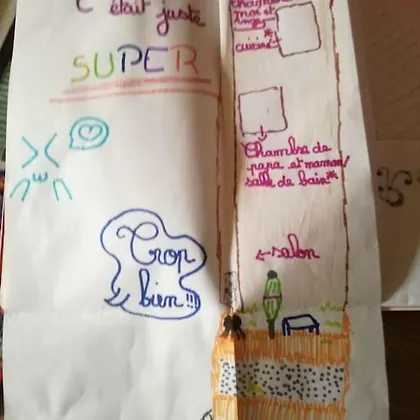 C'était juste
SUPER
Trop
bien!!!
chambre
moi et
cuisine*
Chambre de
papa et maman/
salle de bain*
←salon